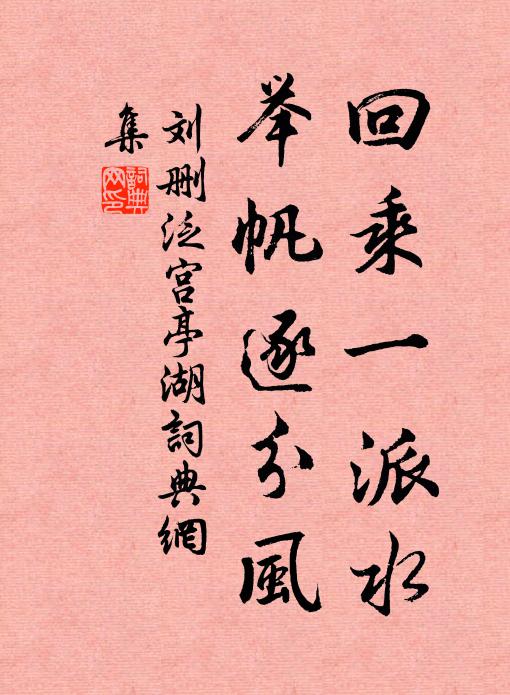 回乘一派水
举帆逐分風
刘删泛宫亭湖詞典網
集
詞典网印